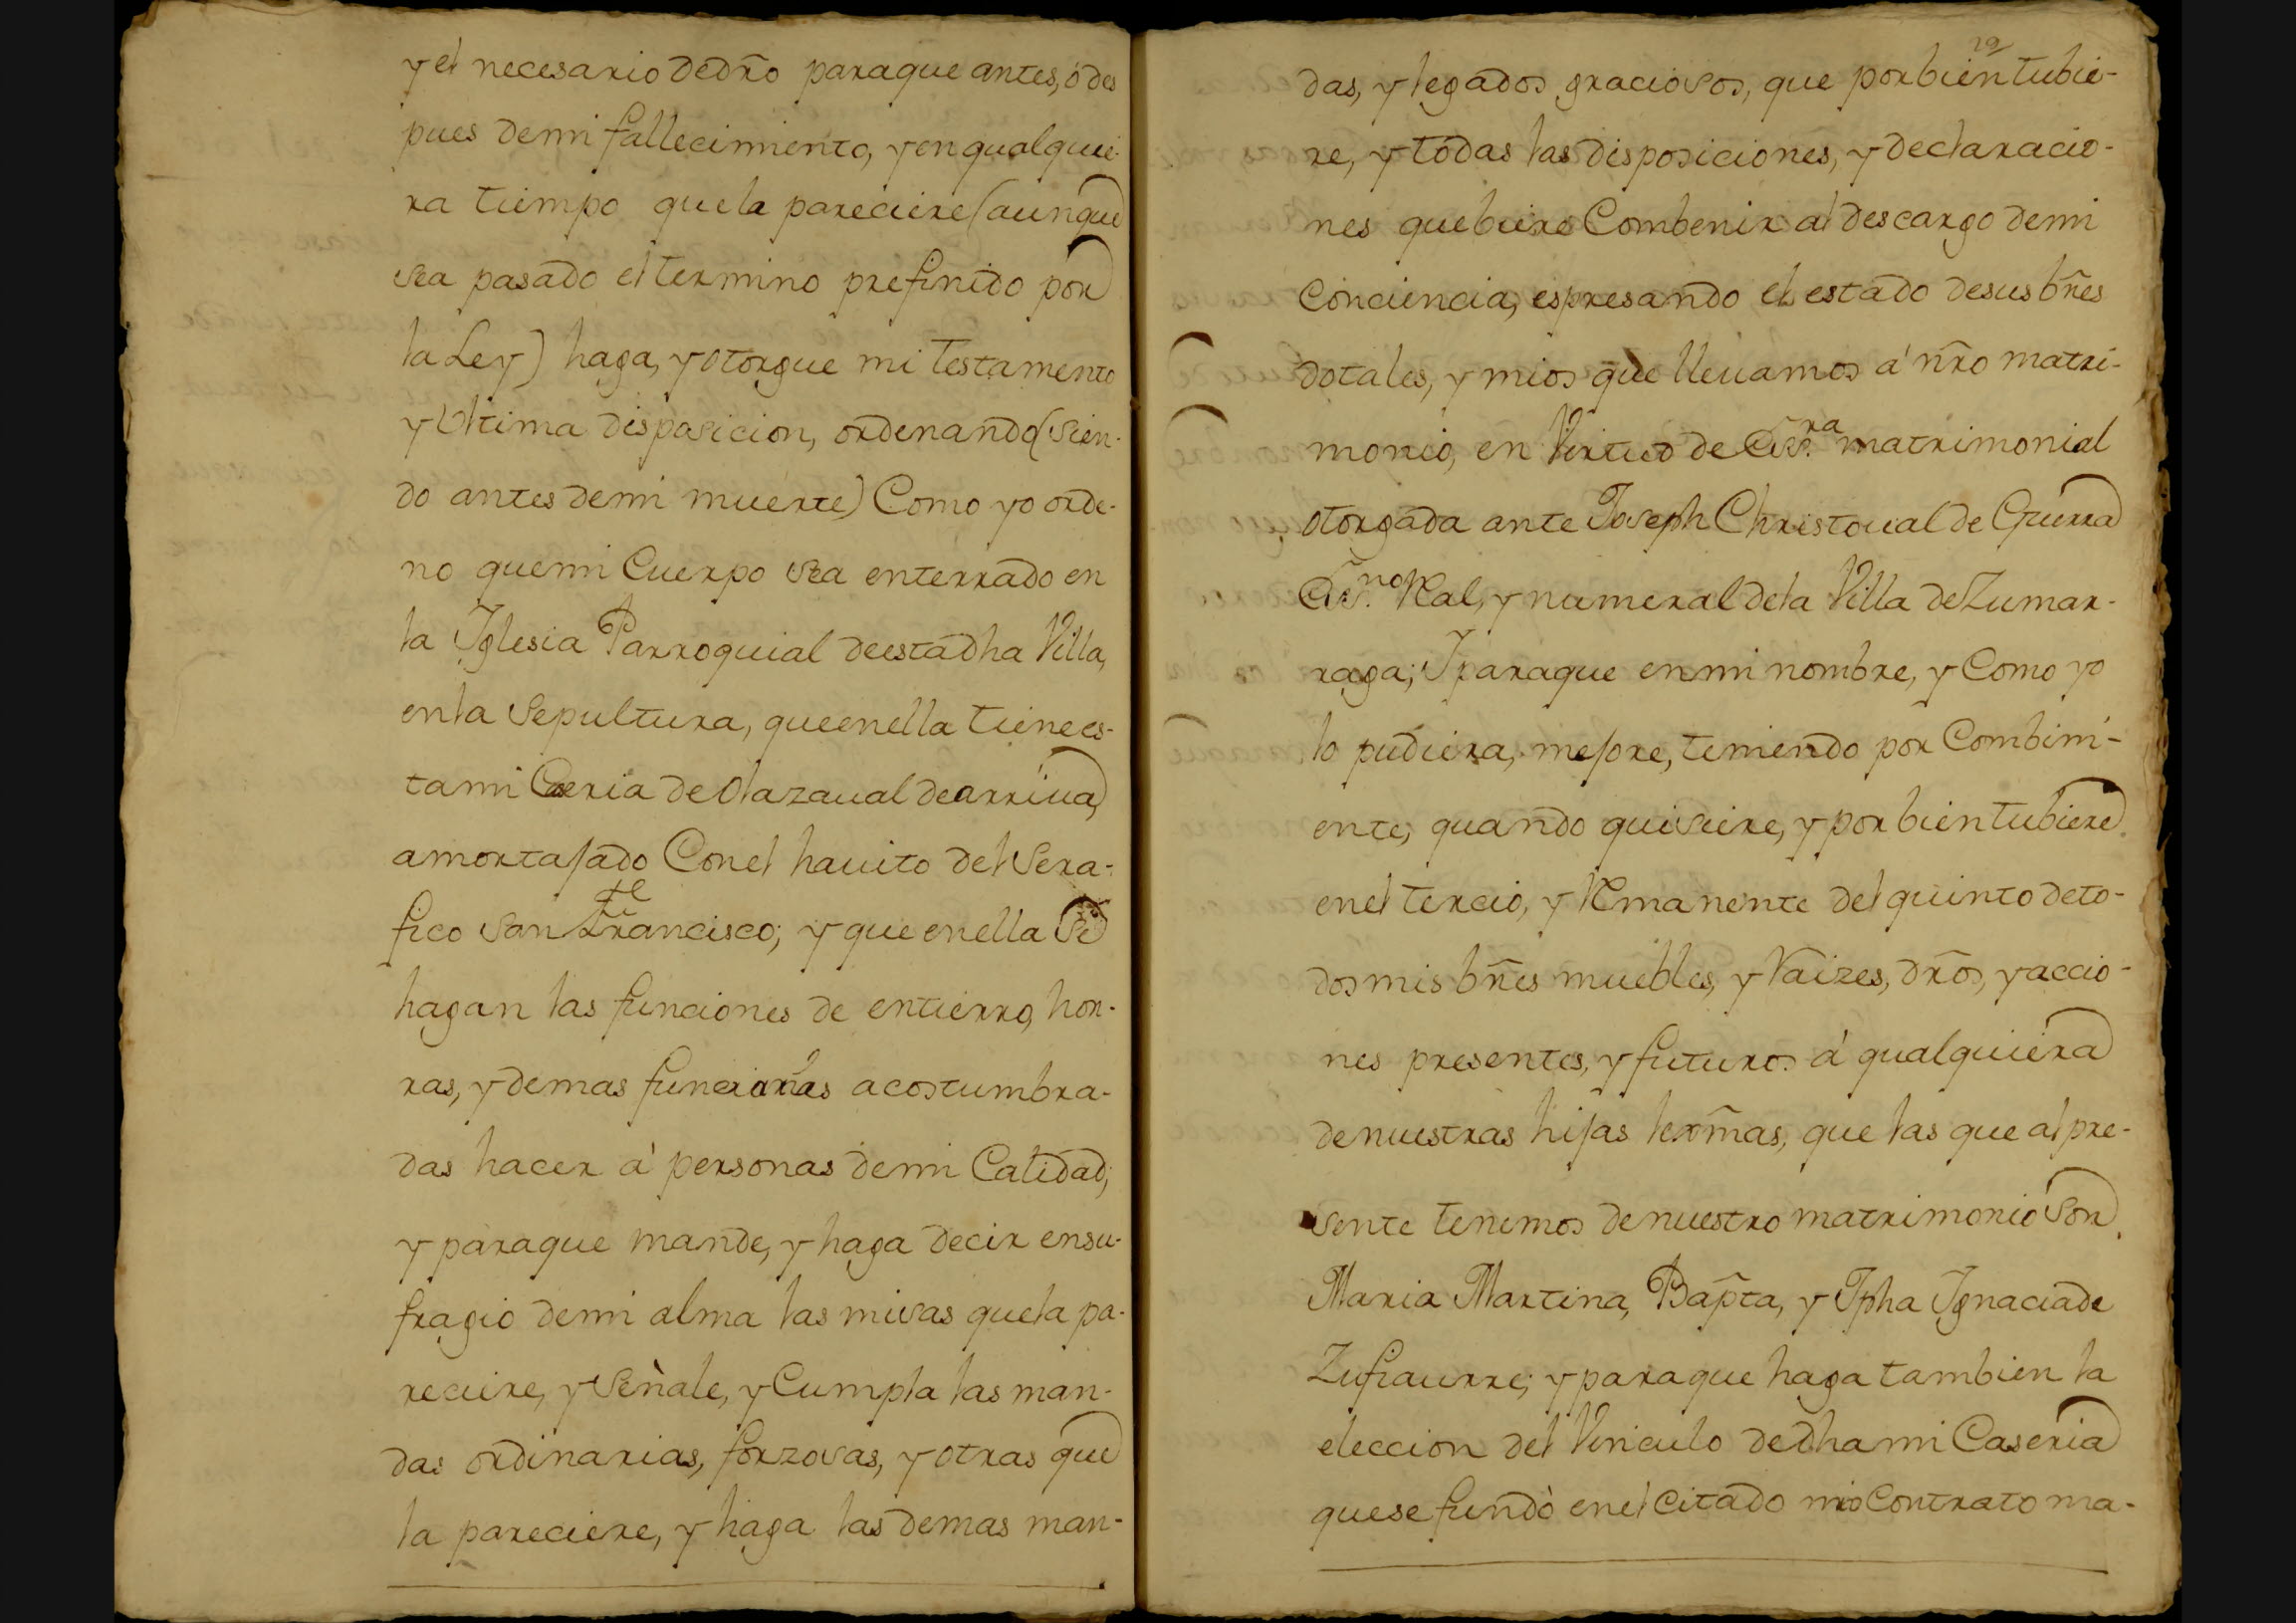 y el necesario dedr̃o paraque antes, ó des
pues demi fallecimiento, y en qualquie-
ra tiempo que la pareciere (aunque
sea pasado el termino prefinido por
la Ley) haga, y otorgue mi testamento
y Ultima disposicion, ordenando (sien-
do antes demi muerte) Como yo orde-
no quemi Cuerpo sea enterrado en
la Iglesia Parroquial deesta dha Villa,
enla sepultura, queenella tiene es-
tami Caseria de Olazaual dearriua,
amortajado Conel hauito del Sera-
fico san Francisco; y que enella se
hagan las funciones de entierro, hon-
ras, y demas funciones acostumbra-
das hacer á personas demi Calidad;
y paraque mande, y haga decir ensu-
fragio demi alma las misas quela pa-
reciere, y señale, y Cumpla las man-
das ordinarias, forzosas, y otras que
la pareciere, y haga las demas man-
19
das, y legados graciosos, que por bien tubie-
re, y todas las disposiciones, y declaracio-
nes quebiere Combenir al descargo demi
Conciencia, espresando el estado desus bñes
dotales, y mios que lleuamos á nr̃o matri-
monio, en Virtud de Esс.ra matrimonial
otorgada ante Joseph Christoual de Guerra
Esс.no Real, y numeral dela Villa de Zumar-
raga; Iparaque enmi nombre, y Como yo
lo pudiera, mejore, teniendo por Combini-
ente, quando quisiere, y por bien tubiere
enel tercio, y Remanente del quinto deto-
dos mis bñes muebles, y Raizes, dr̃os, y accio-
nes presentes, y futuros á qualquiera
denuestras hijas lexm̃as, que las que al pre-
sente tenemos denuestro matrimonio son
Maria Martina, Bap̃ta, y Jpha Ignacia de
Zufiaurre; y paraque haga tambien la
eleccion del Vinculo dedha mi Caseria
quese fundó enel Citado mio Contrato ma-